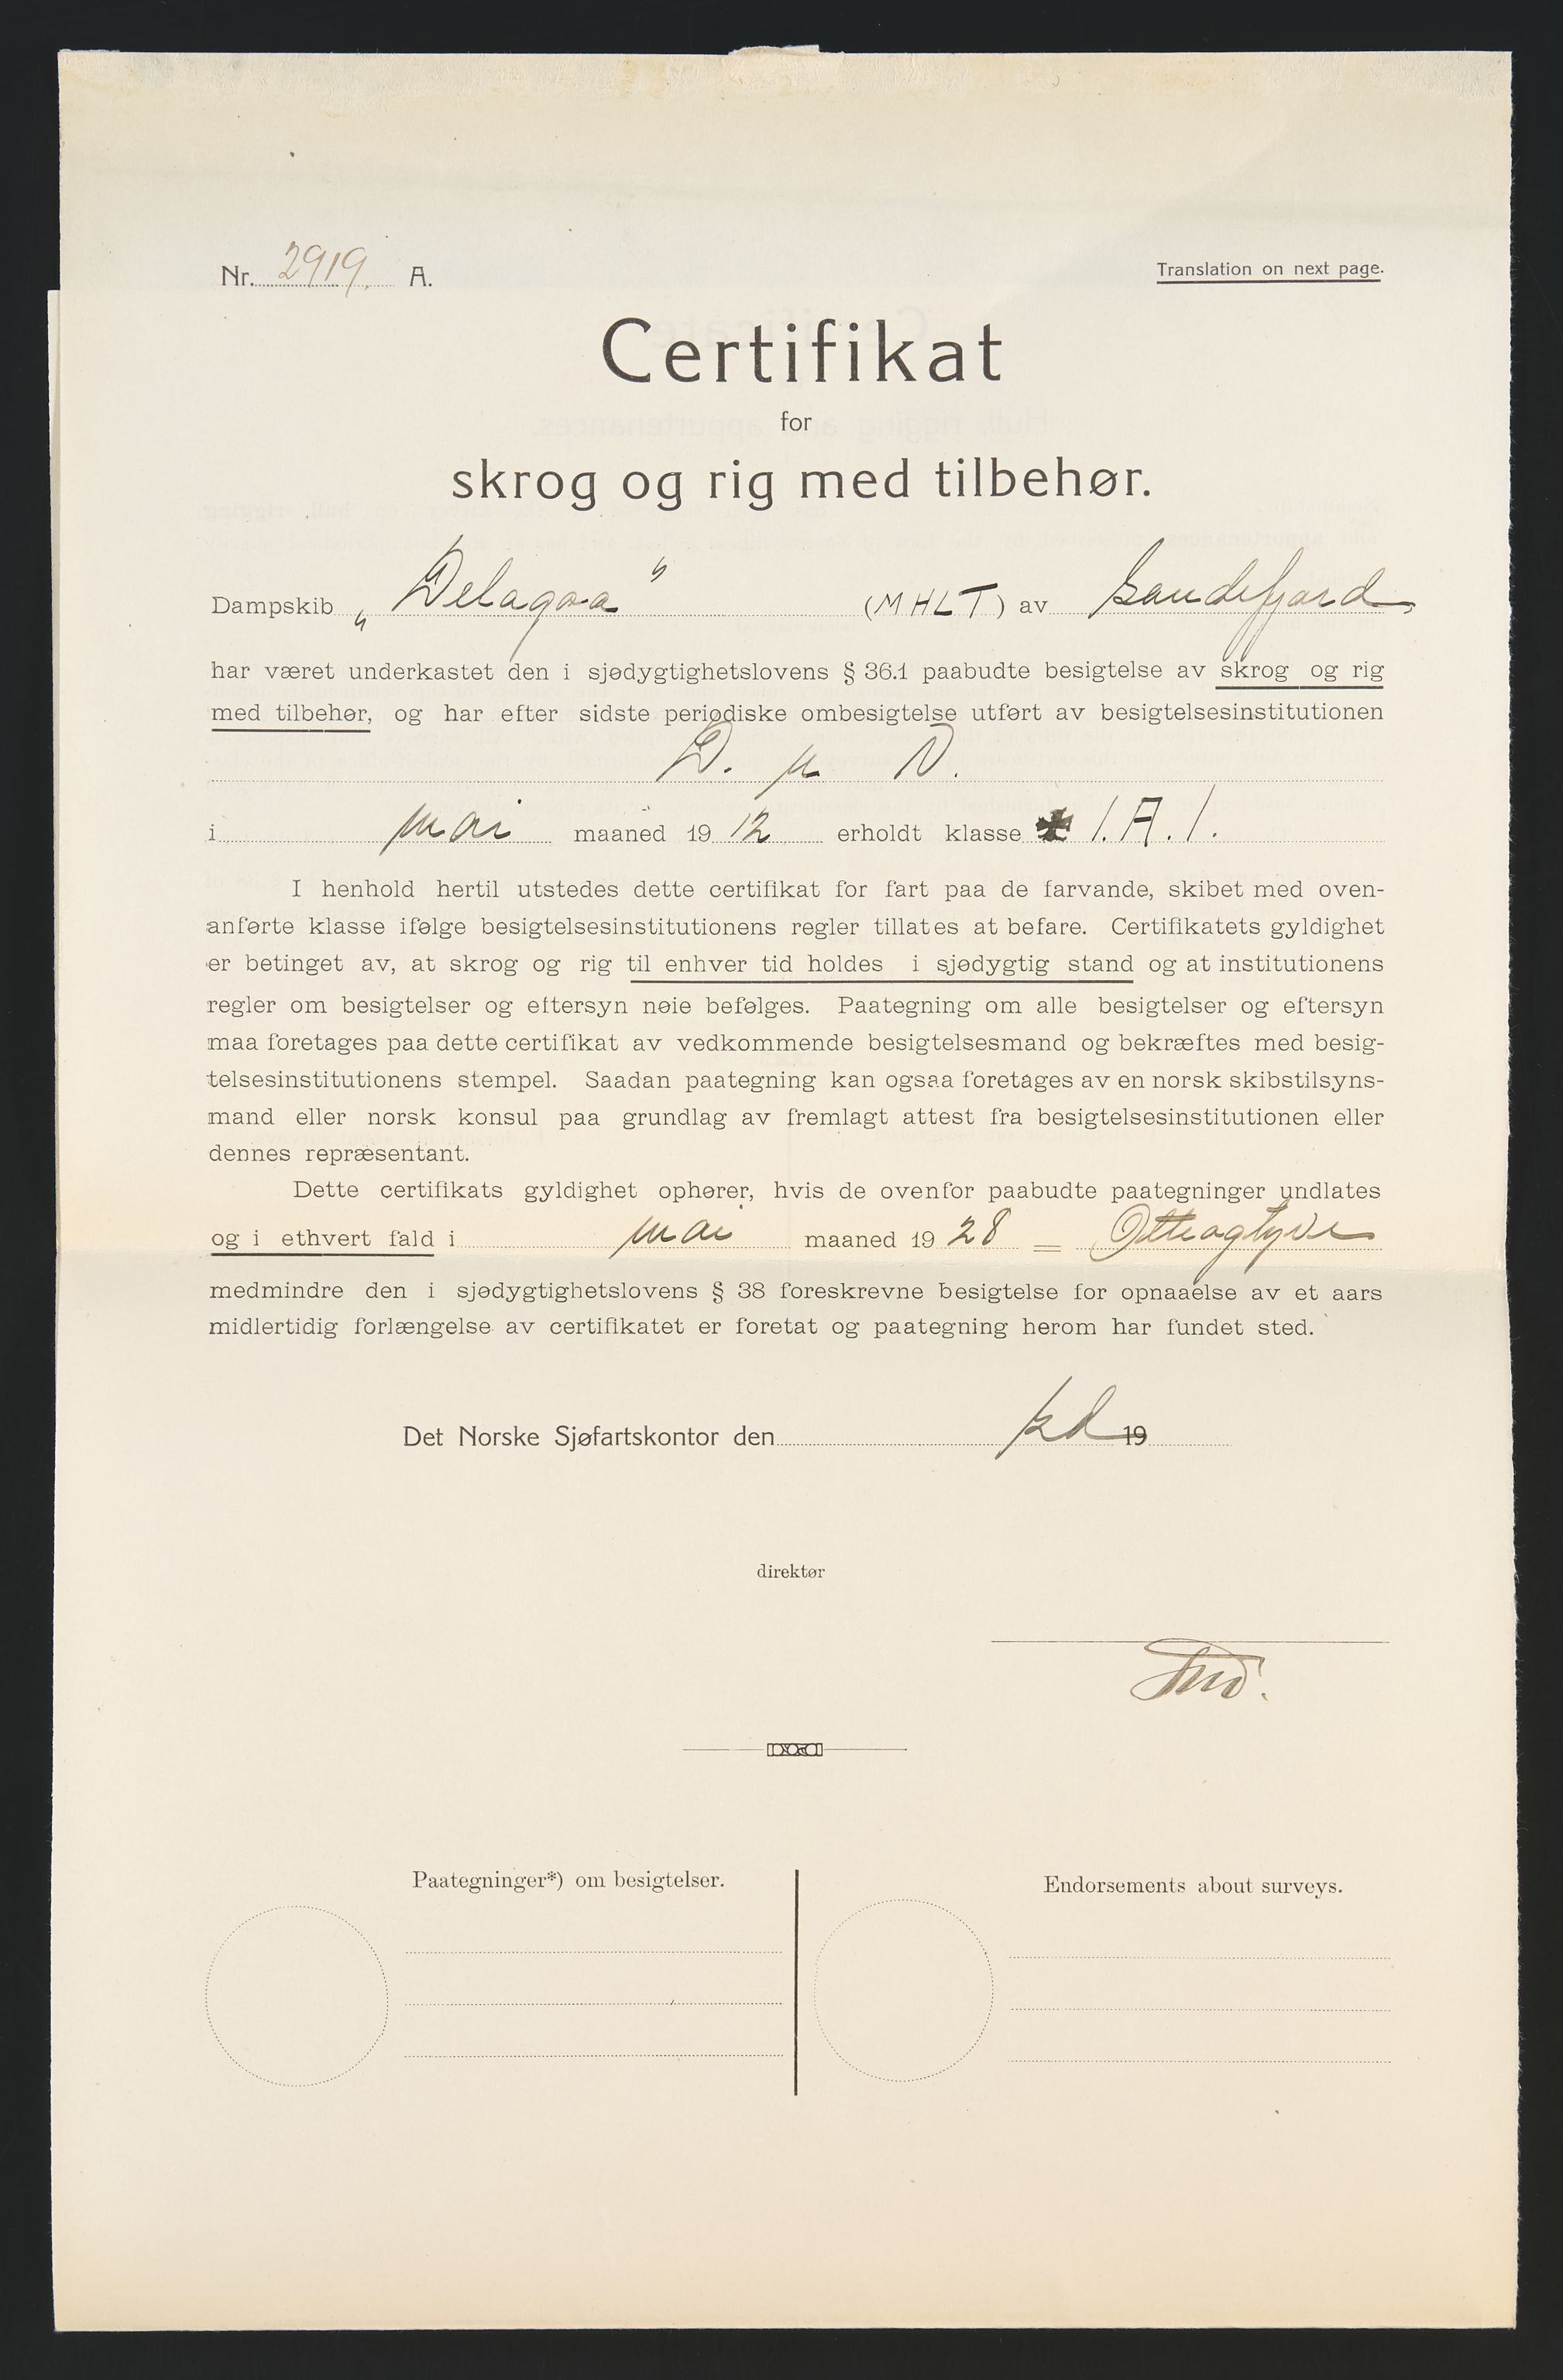 Nr. 2919. A.
Translation on next page.
Certifikat
for
skrog og rig med tilbehør.
Dampskib „Delagoa" (MHLT) av Sandefjord,
har været underkastet den i sjødygtighetslovens § 36.1 paabudte besigtelse av skrog og rig
med tilbehør, og har efter sidste periodiske ombesigtelse utført av besigtelsesinstitutionen
D. n V.
i mai maaned 1912 erholdt klasse ✠ 1.A.1.
I henhold hertil utstedes dette certifikat for fart paa de farvande, skibet med oven-
anførte klasse ifølge besigtelsesinstitutionens regler tillates at befare. Certifikatets gyldighet
er betinget av, at skrog og rig til enhver tid holdes i sjødygtig stand og at institutionens
regler om besigtelser og eftersyn nøie befølges. Paategning om alle besigtelser og eftersyn
maa foretages paa dette certifikat av vedkommende besigtelsesmand og bekræftes med besig-
telsesinstitutionens stempel. Saadan paategning kan ogsaa foretages av en norsk skibstilsyns-
mand eller norsk konsul paa grundlag av fremlagt attest fra besigtelsesinstitutionen eller
dennes repræsentant.
Dette certifikats gyldighet ophører, hvis de ovenfor paabudte paategninger undlates
og i ethvert fald i mai maaned 1928 = Otteogtyve
medmindre den i sjødygtighetslovens § 38 foreskrevne besigtelse for opnaaelse av et aars
midlertidig forlængelse av certifikatet er foretat og paategning herom har fundet sted.
Det Norske Sjøfartskontor den 19
direktør
Paategninger*) om besigtelser.
Endorsements about surveys.